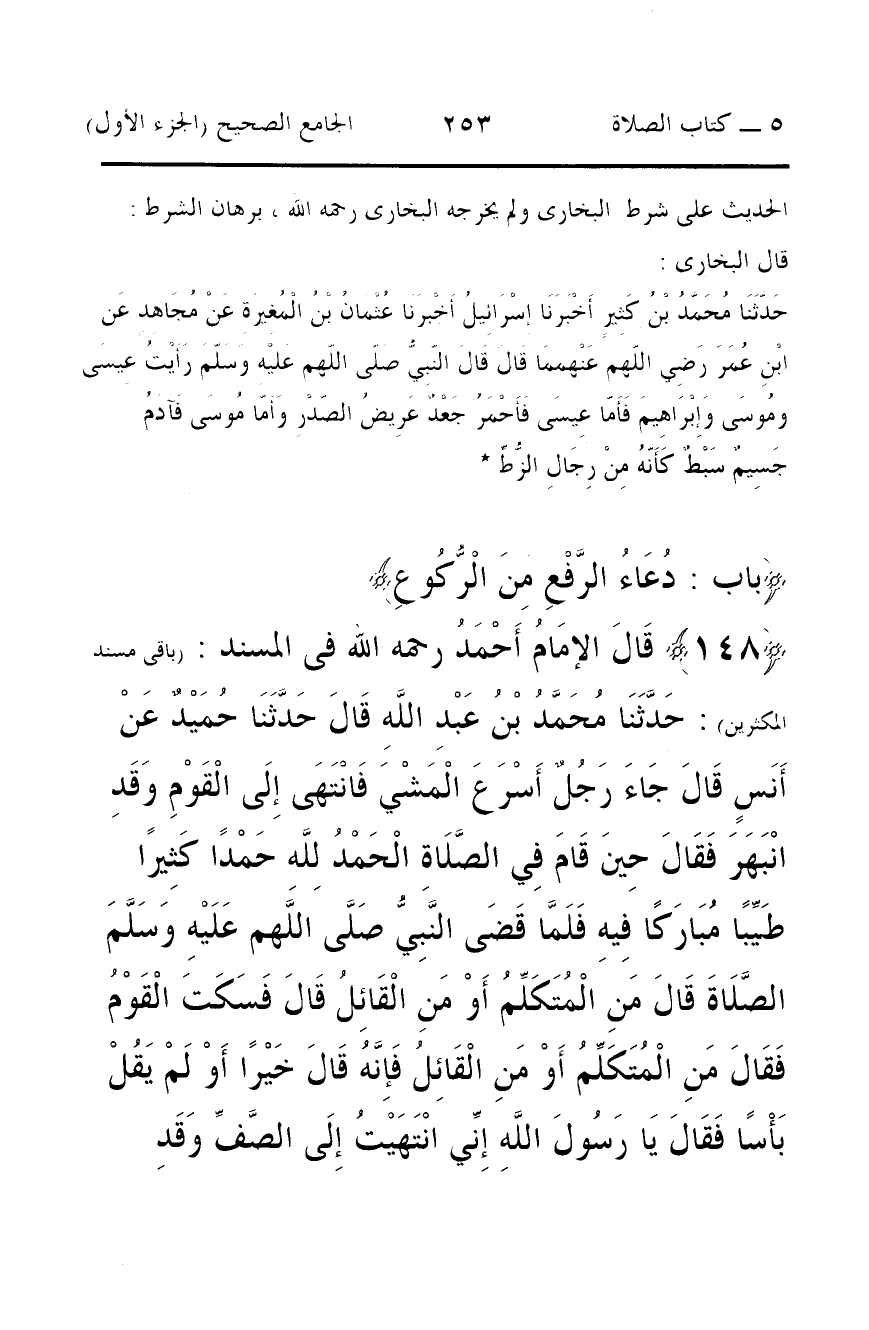 ٥ ــ كتاب الصلاة ٢٥٣ الجامع الصحيح (الجزء الأول)
الحديث على شرط البخارى ولم يخرجه البخارى رحمه الله ، برهان الشرط :
قال البخارى :
حَدَّثَنَا مُحَمَّدُ بْنُ كَثِيرٍ أَخْبَرَنَا إِسْرَائِيلُ أَخْبَرَنَا عُثْمَانُ بْنُ الْمُغِيرَةِ عَنْ مُجَاهِدٍ عَنِ
ابْنِ عُمَرَ رَضِي اللَّهم عَنْهممَا قَالَ قَالَ النَّبِيُّ صَلَّى اللَّهم عَلَيْهِ وَسَلَّمَ رَأَيْتُ عِيسَى
ومُوسَى وَإِبْرَاهِيمَ فَأَمَّا عِيسَى فَأَحْمَرُ جَعْدٌ عَرِيضُ الصَّدْرِ وَأَمَّا مُوسَى فَآدَمُ
جَسِيمٌ سَبْطٌ كَأَنَّهُ مِنْ رِجَالِ الزُّطِّ *
﴿باب : دُعَاءُ الرَّفْعِ مِنَ الْرُّكُوعِ﴾
﴿١٤٨﴾ قَالَ الإمَامُ أَحْمَدُ رحمه الله فى المسند : (باقى مسند
المكثرين) : حَدَّثَنَا مُحَمَّدُ بْنُ عَبْدِ اللَّهِ قَالَ حَدَّثَنَا حُمَيْدٌ عَنْ
أَنَسٍ قَالَ جَاءَ رَجُلٌ أَسْرَعَ الْمَشْيَ فَانْتَهَى إِلَى الْقَوْمِ وَقَدِ
انْبَهَرَ فَقَالَ حِينَ قَامَ فِي الصَّلَاةِ الْحَمْدُ لِلَّهِ حَمْدًا كَثِيرًا
طَيِّبًا مُبَارَكًا فِيهِ فَلَمَّا قَضَى النَّبِيُّ صَلَّى اللَّهم عَلَيْهِ وَسَلَّمَ
الصَّلَاةَ قَالَ مَنِ الْمُتَكَلِّمُ أَوْ مَنِ الْقَائِلُ قَالَ فَسَكَتَ الْقَوْمُ
فَقَالَ مَنِ الْمُتَكَلِّمُ أَوْ مَنِ الْقَائِلُ فَإِنَّهُ قَالَ خَيْرًا أَوْ لَمْ يَقُلْ
بَأْسًا فَقَالَ يَا رَسُولَ اللَّهِ إِنِّي انْتَهَيْتُ إِلَى الصَّفِّ وَقَدِ